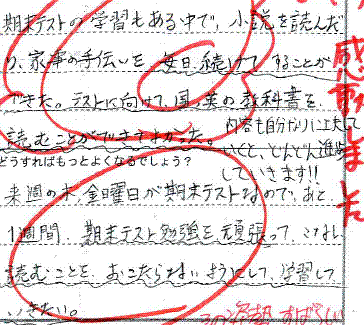 期末テストの学習もある中で、小説を読んだ
り、家事の手伝いを毎日続けてすることが
できた。テストに向けて、国、英の教科書を、
読むことができませんでした。
内容も自分なりに工夫して
いくと、どんどん進歩
していきます!!
感心しました
どうすればもっとよくなるでしょう?
来週の木、金曜日が期末テストなので、あと
1週間、期末テスト勉強を頑張って、
読むことを、おこたらないようにして、学習して
いきたい。
すばらしい